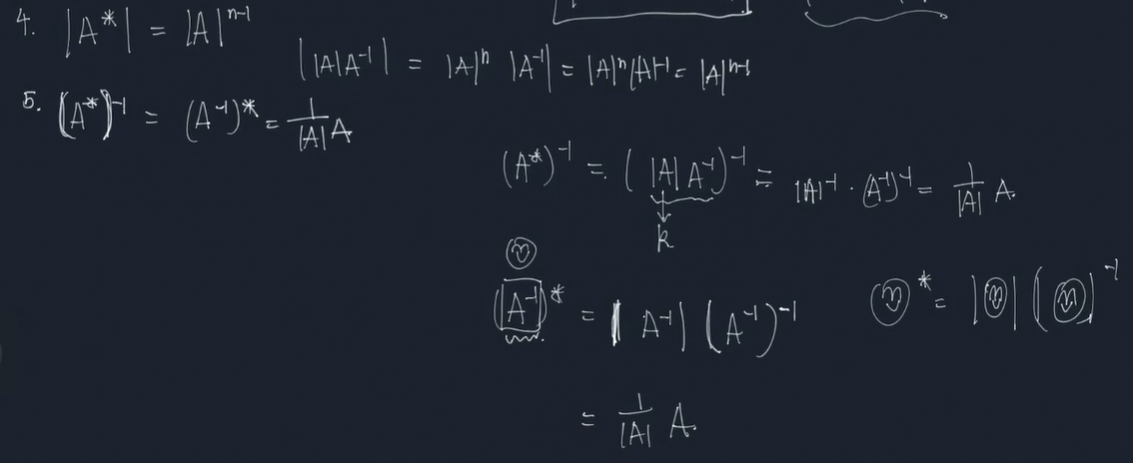 4. |A*| = |A|^{n-1}
||A|A^{-1}| = |A|^n |A^{-1}| = |A|^n |A|^{-1} = |A|^{n-1}
5. (A*)^{-1} = (A^{-1})* = \frac{1}{|A|} A
(A*)^{-1} = (|A| A^{-1})^{-1} = |A|^{-1} · (A^{-1})^{-1} = \frac{1}{|A|} A.
k
(A^{-1})* = |A^{-1}| (A^{-1})^{-1}
♡* = |♡| (♡)^{-1}
= \frac{1}{|A|} A.